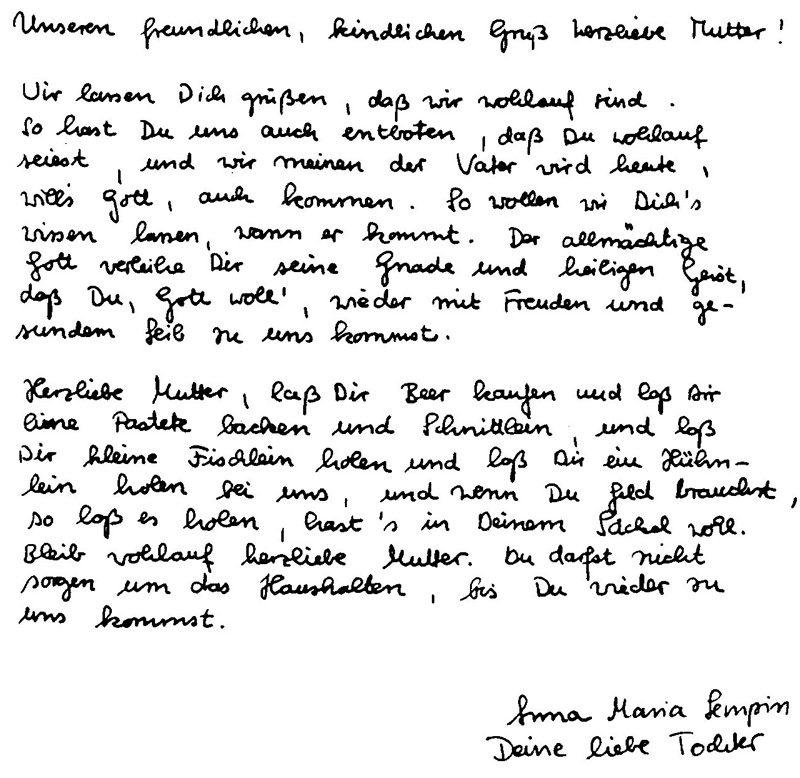 Unseren freundlichen, kindlichen Gruß herzliebe Mutter!
Wir lassen Dich grüßen, daß wir wohlauf sind.
So hast Du uns auch entboten, daß Du wohlauf
seiest, und wir meinen der Vater wird heute,
will's Gott, auch kommen. So wollen wir Dich's
wissen lassen, wann er kommt. Der allmächtige
Gott verleihe Dir seine Gnade und heiligen Geist,
daß Du, Gott woll', wieder mit Freuden und ge-
sundem Leib zu uns kommst.
Herzliebe Mutter, laß Dir Beer kaufen und laß Dir
eine Pastete backen und Schnittlein, und laß
Dir kleine Fischlein holen und laß Dir ein Hühn-
lein holen bei uns, und wenn Du Geld brauchst,
so laß es holen, hast's in Deinem Säckel woll.
Bleib wohlauf herzliebe Mutter. Du darfst nicht
sorgen um das Haushalten, bis Du wieder zu
uns kommst.
Anna Maria Sempin
Deine liebe Tochter